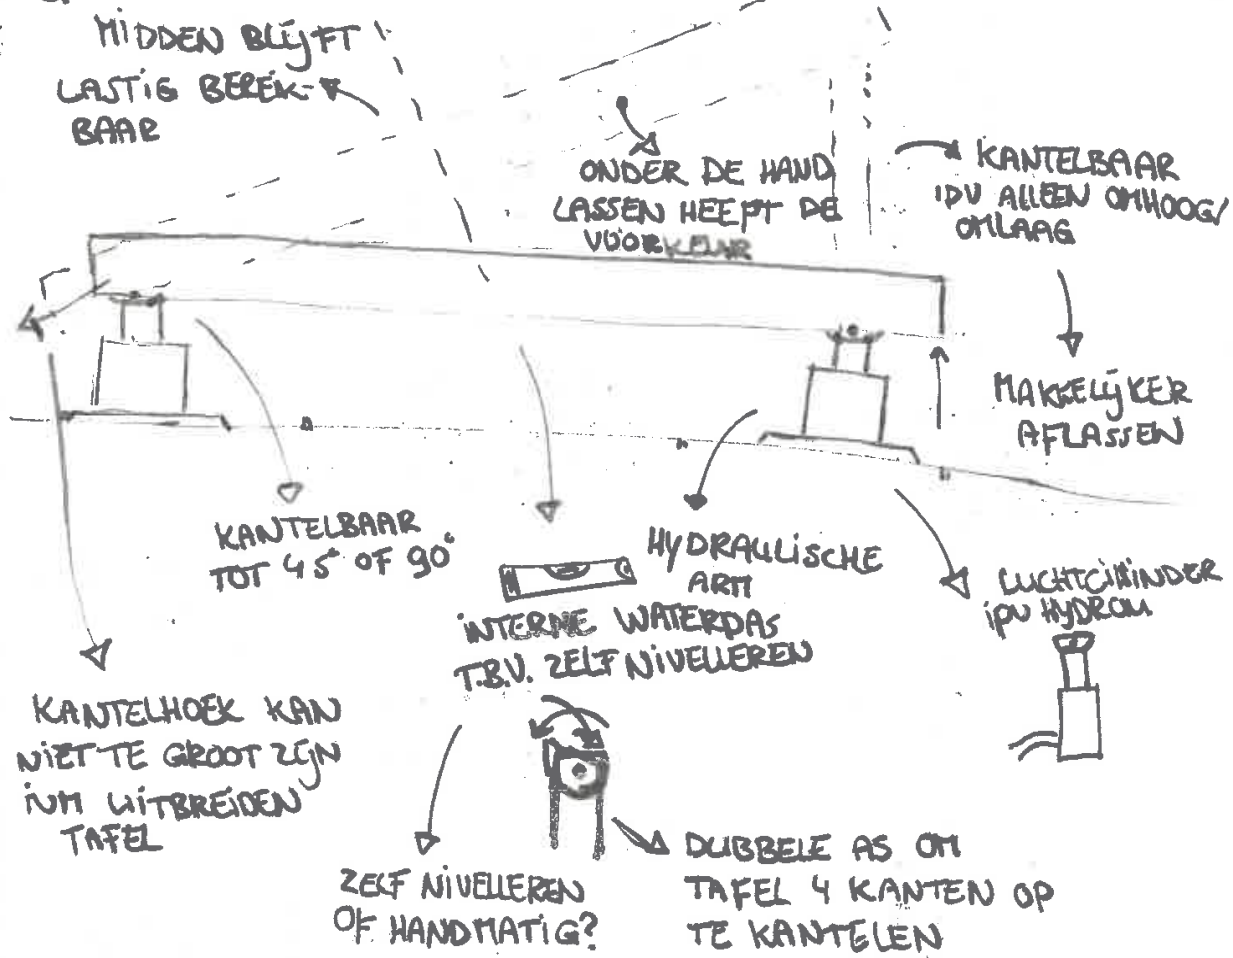 MIDDEN BLIJFT
LASTIG BEREIK-
BAAR
ONDER DE HAND
LASSEN HEEFT DE
VOORKEUR
KANTELBAAR
IPV ALLEEN OMHOOG/
OMLAAG
MAKKELIJKER
AFLASSEN
KANTELBAAR
TOT 45° OF 90°
HYDRAULISCHE
ARM
LUCHTCILINDER
IPV HYDROM
INTERNE WATERPAS
T.B.V. ZELF NIVELLEREN
KANTELHOEK KAN
NIET TE GROOT ZIJN
IVM UITBREIDEN
TAFEL
ZELF NIVELLEREN
OF HANDMATIG?
DUBBELE AS OM
TAFEL 4 KANTEN OP
TE KANTELEN